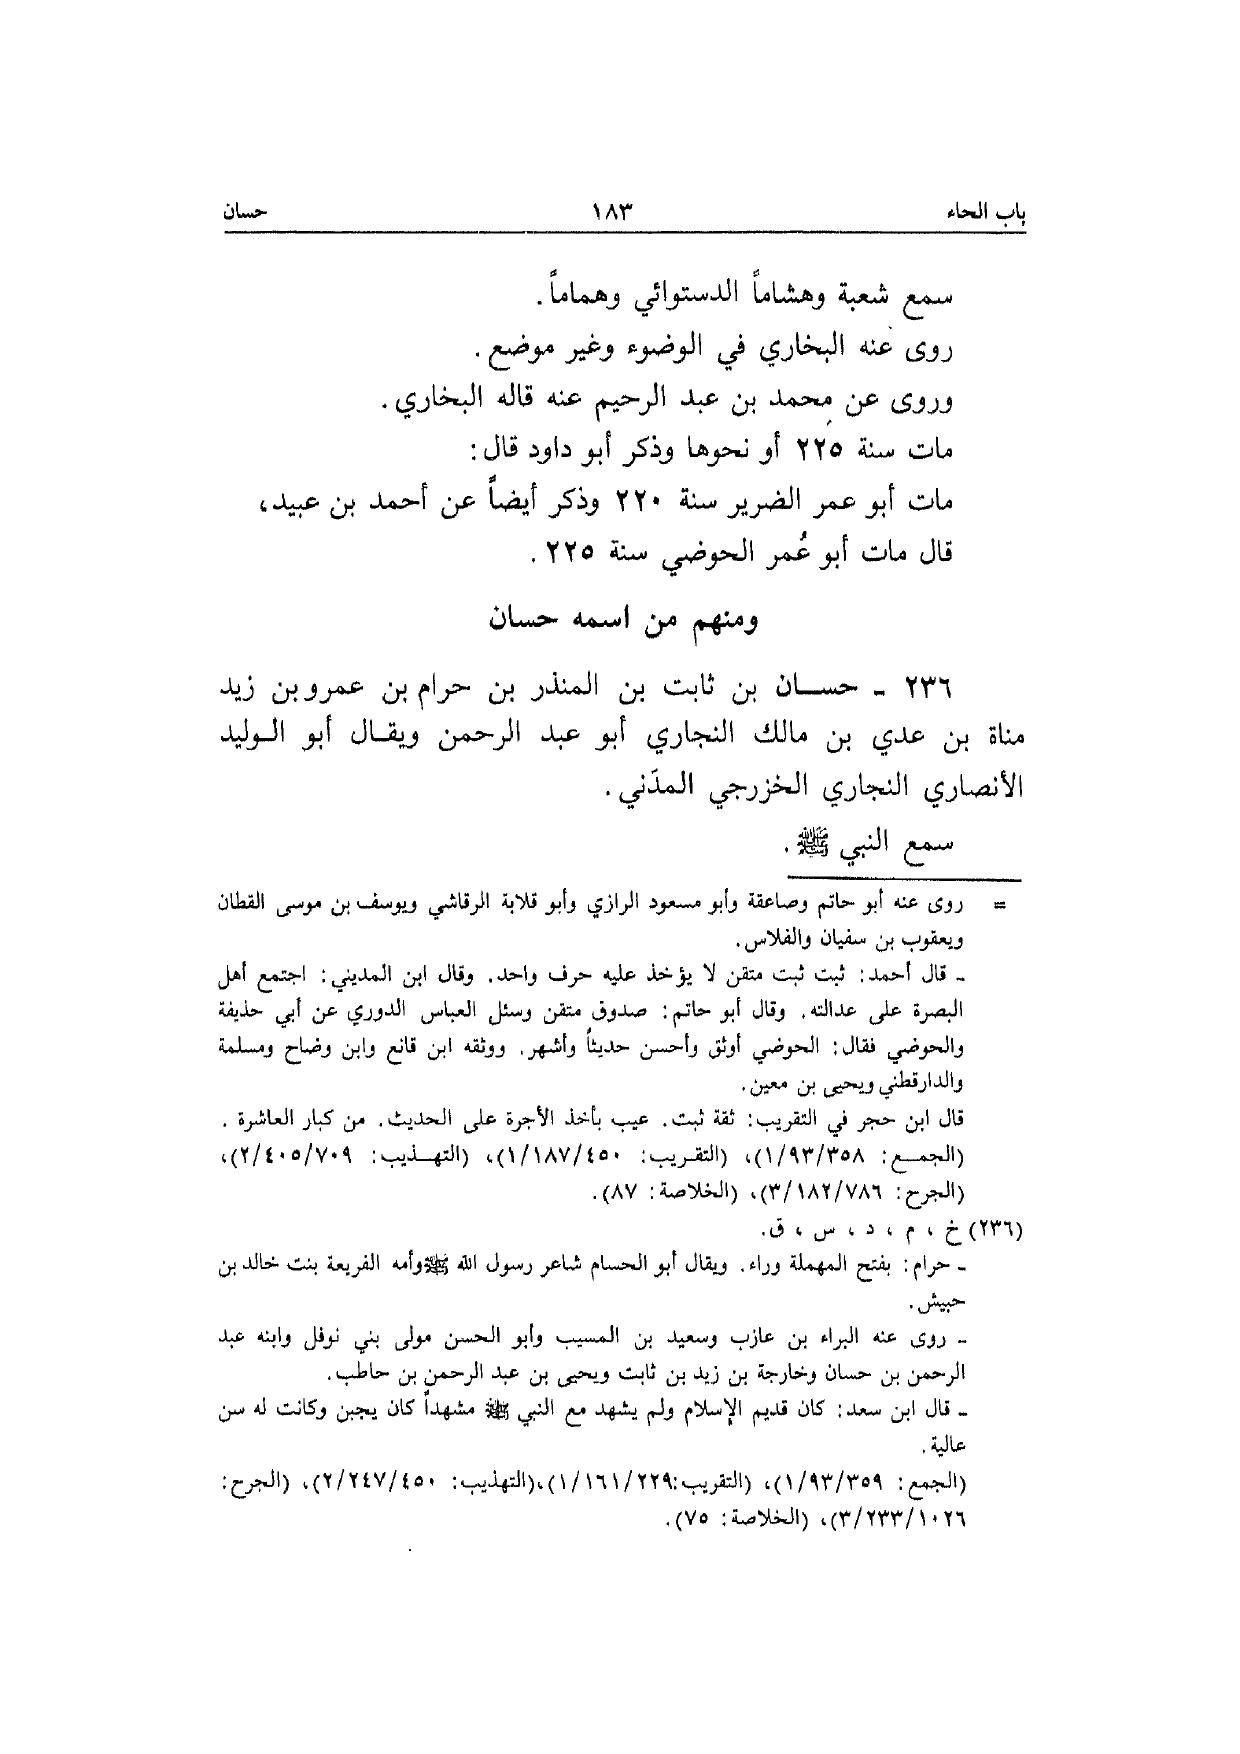 باب الحاء ١٨٣ حسان
سمع شعبة وهشاماً الدستوائي وهماماً.
روى عنه البخاري في الوضوء وغير موضع.
وروى عن محمد بن عبد الرحيم عنه قاله البخاري.
مات سنة ٢٢٥ أو نحوها وذكر أبو داود قال:
مات أبو عمر الضرير سنة ٢٢٠ وذكر أيضاً عن أحمد بن عبيد،
قال مات أبو عُمر الحوضي سنة ٢٢٥.
ومنهم من اسمه حسان
٢٣٦ ـ حسـان بن ثابت بن المنذر بن حرام بن عمرو بن زيد
مناة بن عدي بن مالك النجاري أبو عبد الرحمن ويقـال أبو الـوليد
الأنصاري النجاري الخزرجي المدَني.
سمع النبي ﷺ.
= روى عنه أبو حاتم وصاعقة وأبو مسعود الرازي وأبو قلابة الرقاشي ويوسف بن موسى القطان
ويعقوب بن سفيان والفلاس.
ـ قال أحمد: ثبت ثبت متقن لا يؤخذ عليه حرف واحد. وقال ابن المديني: اجتمع أهل
البصرة على عدالته. وقال أبو حاتم: صدوق متقن وسئل العباس الدوري عن أبي حذيفة
والحوضي فقال: الحوضي أوثق وأحسن حديثاً وأشهر. ووثقه ابن قانع وابن وضاح ومسلمة
والدارقطني ويحيى بن معين.
قال ابن حجر في التقريب: ثقة ثبت. عيب بأخذ الأجرة على الحديث. من كبار العاشرة.
(الجمـع: ١/٩٣/٣٥٨)، (التقـريب: ١/١٨٧/٤٥٠)، (التهـذيب: ٢/٤٠٥/٧٠٩)،
(الجرح: ٣/١٨٢/٧٨٦)، (الخلاصة: ٨٧).
(٢٣٦) خ ، م ، د ، س ، ق.
ـ حرام: بفتح المهملة وراء. ويقال أبو الحسام شاعر رسول الله ﷺ وأمه الفريعة بنت خالد بن
حبيش.
ـ روى عنه البراء بن عازب وسعيد بن المسيب وأبو الحسن مولى بني نوفل وابنه عبد
الرحمن بن حسان وخارجة بن زيد بن ثابت ويحيى بن عبد الرحمن بن حاطب.
ـ قال ابن سعد: كان قديم الإسلام ولم يشهد مع النبي ﷺ مشهداً كان يجبن وكانت له سن
عالية.
(الجمع: ١/٩٣/٣٥٩)، (التقريب: ١/١٦١/٢٢٩)،(التهذيب: ٢/٢٤٧/٤٥٠)، (الجرح:
٣/٢٣٣/١٠٢٦)، (الخلاصة: ٧٥).